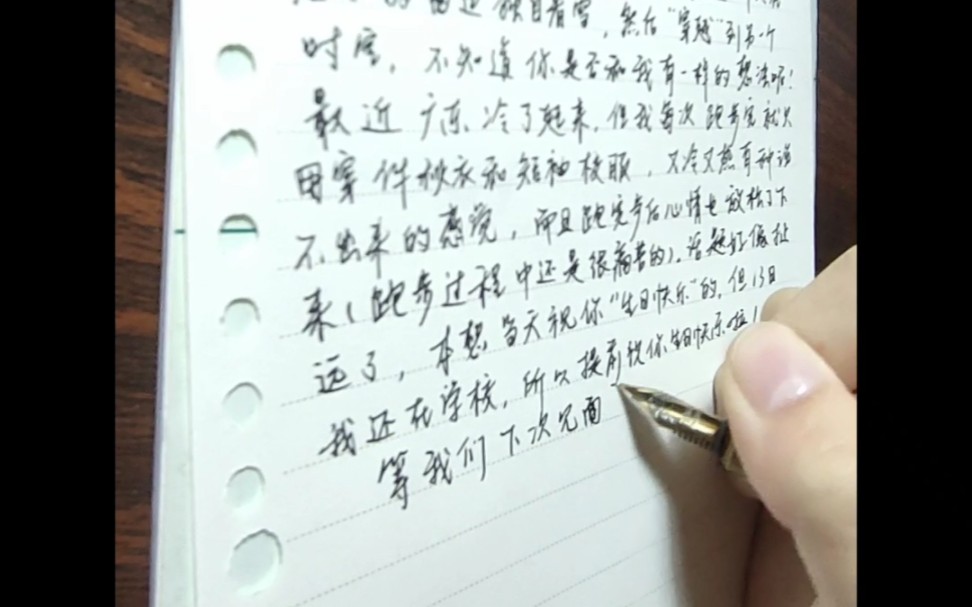 的雷达独自看雪，然后“穿越”到另一个
时空，不知道你是否和我有一样的想法呢！
最近广东冷了起来，但我每次跑步完就只
用穿件秋衣和短袖校服，又冷又热有种说
不出来的感觉，而且跑完步后心情也放松了下
来（跑步过程中还是很痛苦的）。话题好像扯
远了，本想当天祝你“生日快乐”的，但13日
我还在学校，所以提前祝你生日快乐啦！
等我们下次见面